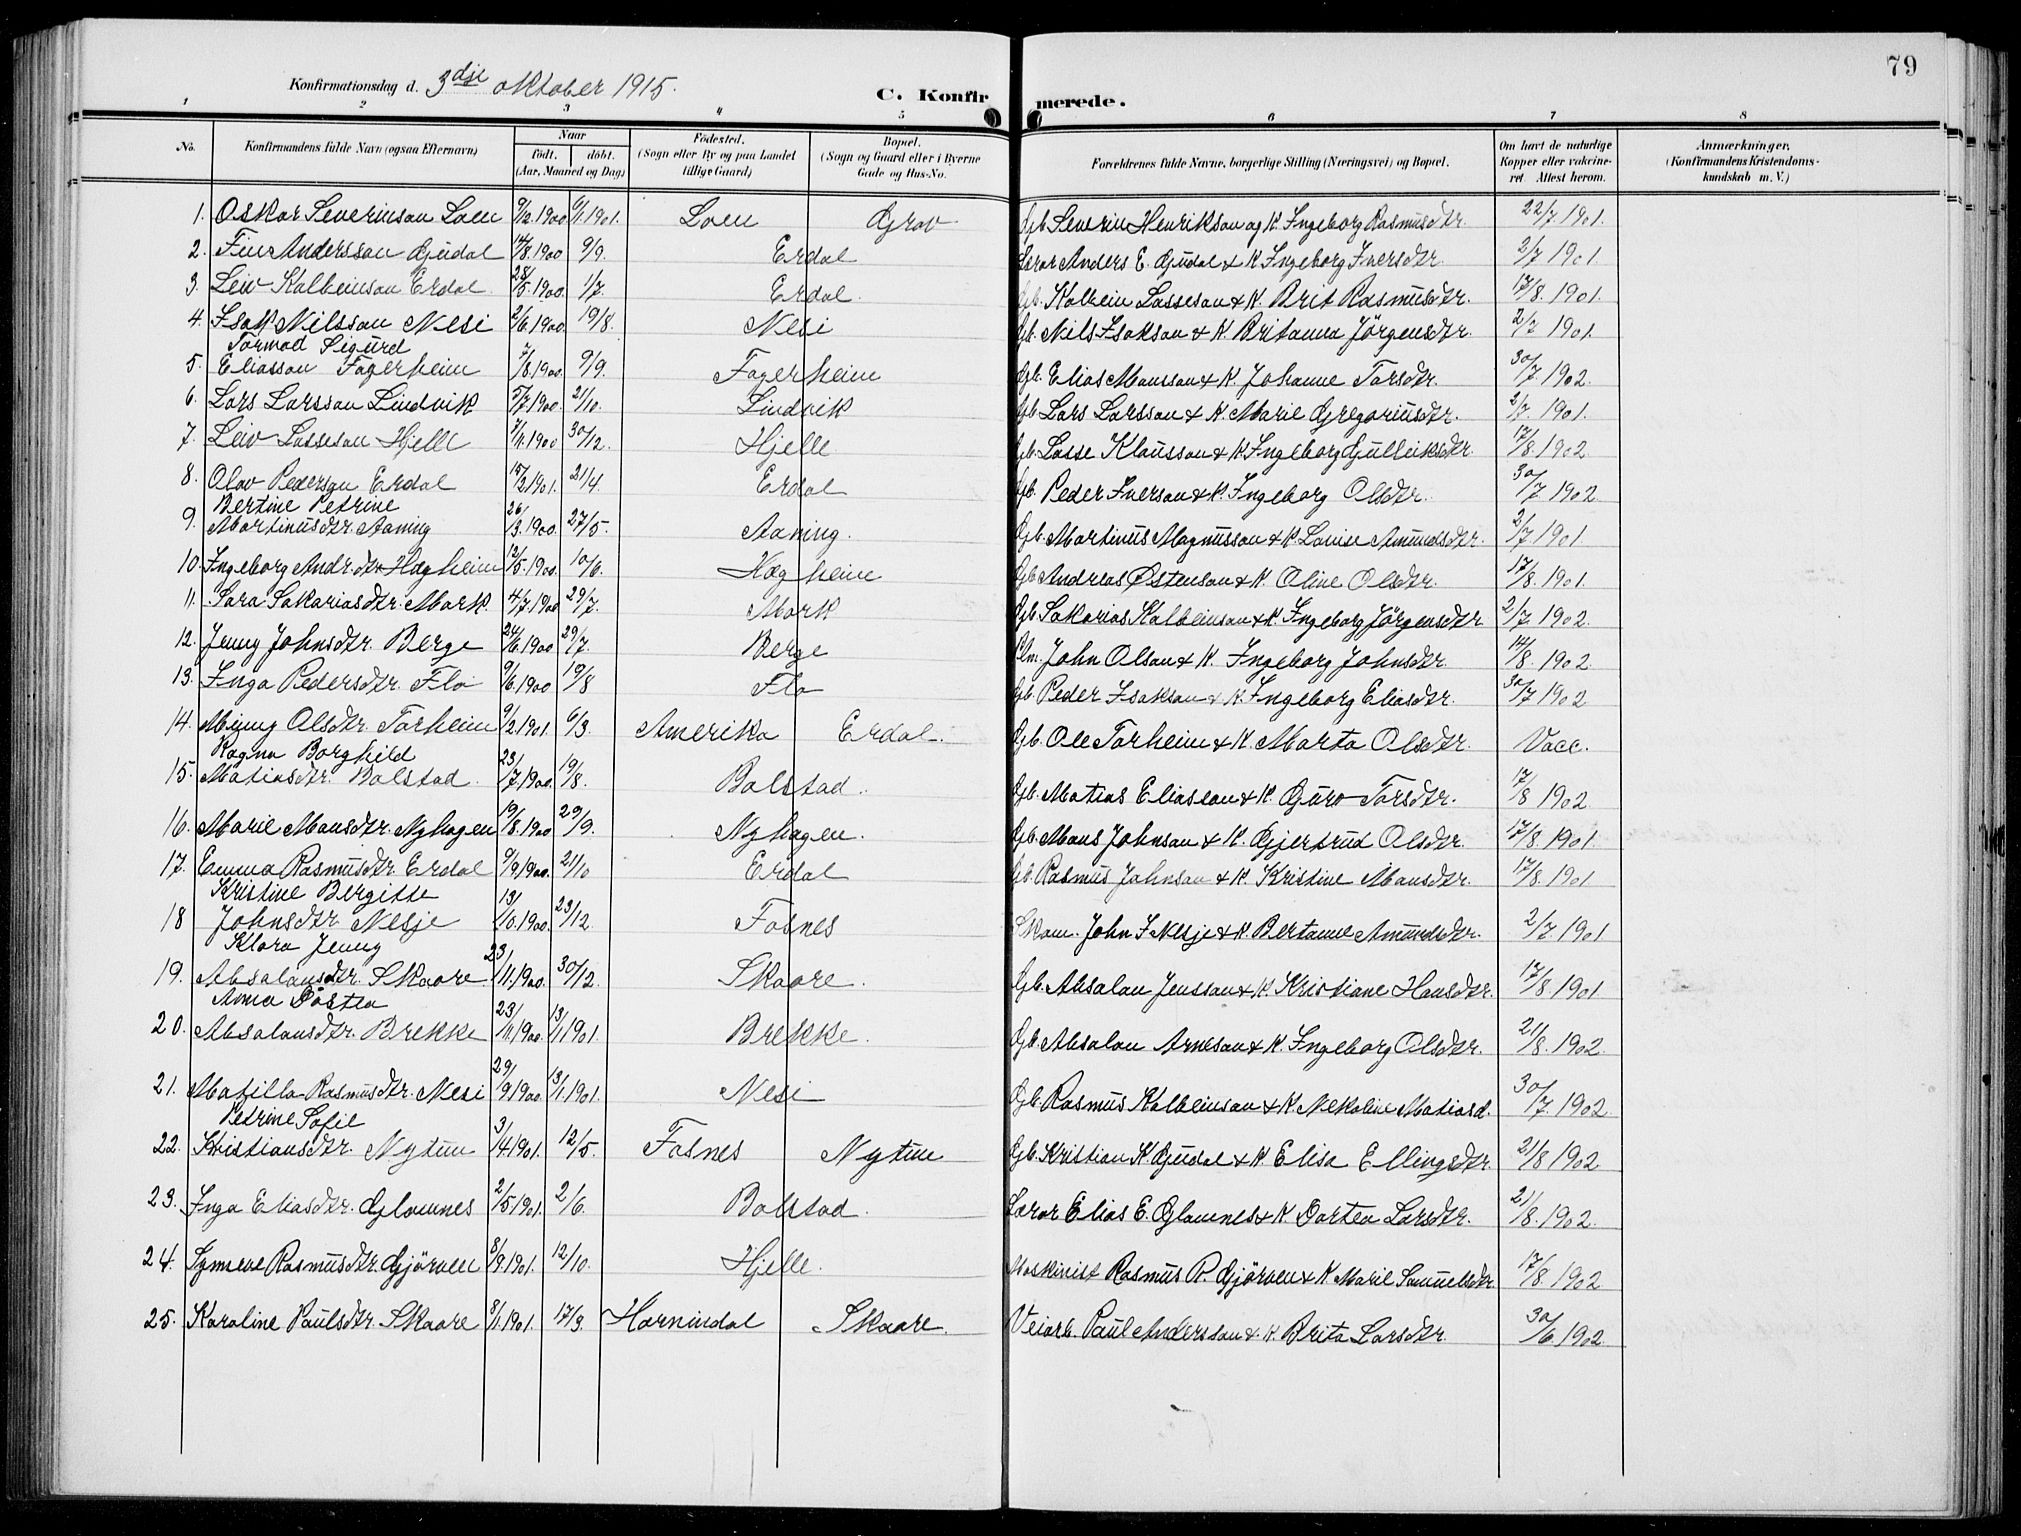 79
Konfirmationsdag d. 3dje oktober 1915.
C. Konfirmerede.
1 2 3 4 5 6 7 8
No. Konfirmandens fulde Navn (ogsaa Efternavn) Naar födt. döbt. (Aar, Maaned og Dag) Födested. (Sogn eller By og paa Landet tillige Gaard) Bopæl. (Sogn og Gaard eller i Byerne Gade og Hus-No. Forældrenes fulde Navne, borgerlige Stilling (Næringsvei) og Bopæl. Om havt de naturlige Kopper eller vakcineret Attest herom. Anmærkninger. (Konfirmandens Kristendomskundskab m. V.)
1. Oskar Severinson Loen 9/12.1900 6/1.1901. Loen Grov Gb. Severin Henrikson og K. Ingeborg Rasmusdtr. 22/7.1901.
2. Finn Andersson Gjudal 14/8.1900 9/9. Erdal Lærar Anders E. Gjudal & K. Ingeborg Iversdtr. 2/7 1901.
3. Leiv Kolbeinson Erdal 28/5.1900. 1/7. Erdal. Gb. Kolbein Lasseson & K. Brit Rasmusdtr. 17/8.1901.
4. Isak Nilsson Nesi 2/6.1900. 19/8. Nesi Gb. Nils Isakson & K. Britanna Jörgensdtr. 2/7 1901.
Tormod Sigurd
5. Eliasson Fagerheim 7/8.1900. 9/9. Fagerheim Gb. Elias Monsson & K. Johanne Torsdtr. 30/7 1902.
6. Lars Larsson Lindvik 5/7.1900. 21/10. Lindvik Gb. Lars Larsson & K. Marie Gregoriusdtr. 2/7. 1901.
7. Leiv Lasseson Hjelle 7/11.1900 30/12. Hjelle Gb. Lasse Klausson & K. Ingeborg Gulleiksdtr. 17/8.1902.
8. Olav Pederson Erdal 15/2.1901. 21/4. Erdal Gb. Peder Iverson & K. Ingeborg Olsdtr. 30/7 1902.
Bertine Petrine
9. Martinusdtr. Aaning 26/3.1900. 27/5. Aaning. Gb. Martinus Magnusson & K. Lovise Amundsdtr. 2/7 1901.
10. Ingeborg Andr.dtr Hægheim 12/5.1900. 10/6. Hægheim Gb. Andreas Østenson & K. Oline Olsdtr. 17/8.1901.
11. Sara Sakariasdtr. Mork. 4/7.1900 29/7. Mork Gb. Sakarias Kolbeinson & K. Ingeborg Jörgensdtr 2/7 1902.
12. Jenny Johnsdtr. Berge 24/6.1900 29/7. Berge John Olson & K. Ingeborg Johnsdtr. 14/8.1902
13. Inga Pedersdtr. Flo 9/6.1900 19/8 Flo Gb. Peder Isakson & K. Ingeborg Eliasdtr. 30/7 1902
14. Olsdtr. Torheim 9/2.1901. 6/3. Amerika Erdal. Gb. Ole Torheim & K. Marta Olsdtr. Vacc.
Ragna Borghild
15. Matiasdtr. Bolstad. 23/7.1900. 19/8. Bolstad. Gb. Matias Eliasson & K. Guro Torsdtr. 17/8 1902
16. Marie Monsdtr. Nyhagen 19/8.1900 29/9. Nyhagen. Gb. Mons Johnson & K. Gjertrud Olsdtr. 17/8.1901.
17. Emma Rasmusdtr. Erdal 9/9.1900. 21/10 Erdal Gb. Rasmus Johnson & K. Kristine Monsdtr. 17/8.1901
Kristine Bergitte
18 Johnsdtr Nesje 13/10.1900. 23/12. Fosnes Skom. John I Nesje & K. Bertanne Amundsdtr. 2/7.1901
Klara Jenny
19. Absalonsdtr. Skaare 23/11.1900. 30/12. Skaare. Gb. Absalon Jensson & K. Kristiane Hansdtr. 17/8.1901.
Anna Dortea
20. Absalonsdtr. Brekke 23/11.1900. 13/1.1901. Brekke. Gb. Absalon Arneson & K. Ingeborg Olsdtr. 21/8.1902.
21. Matilla Rasmusdtr. Nesi 29/9.1900. 13/1.1901. Nesi Gb. Rasmus Kolbeinson & K. Nekoline Matiasd. 30/7.1902.
Petrine Sofie
22. Kristiansdtr. Nytun 3/4.1901. 12/5. Fosnes Nytun Gb. Kristian K Gjudal & K. Elisa Ellingsdtr. 21/8 1902
23. Inga Eliasdtr. Glomnes 2/5.1901. 2/6. Bolstad. Lærar Elias E. Glomnes & K Dortea Larsdtr. 21/8.1902.
24. Synneve Rasmusdtr. Gjörven 8/9.1901. 12/10. Hjelle. Maskinist Rasmus R. Gjörven & K Marie Samuelsdtr 17/8.1902
25. Karoline Paulsdtr. Skaare 8/1.1901. 17/3. Hornindal Skaare. Veiarb. Paul Andersson & K Brita Larsdtr. 30/6 1902.